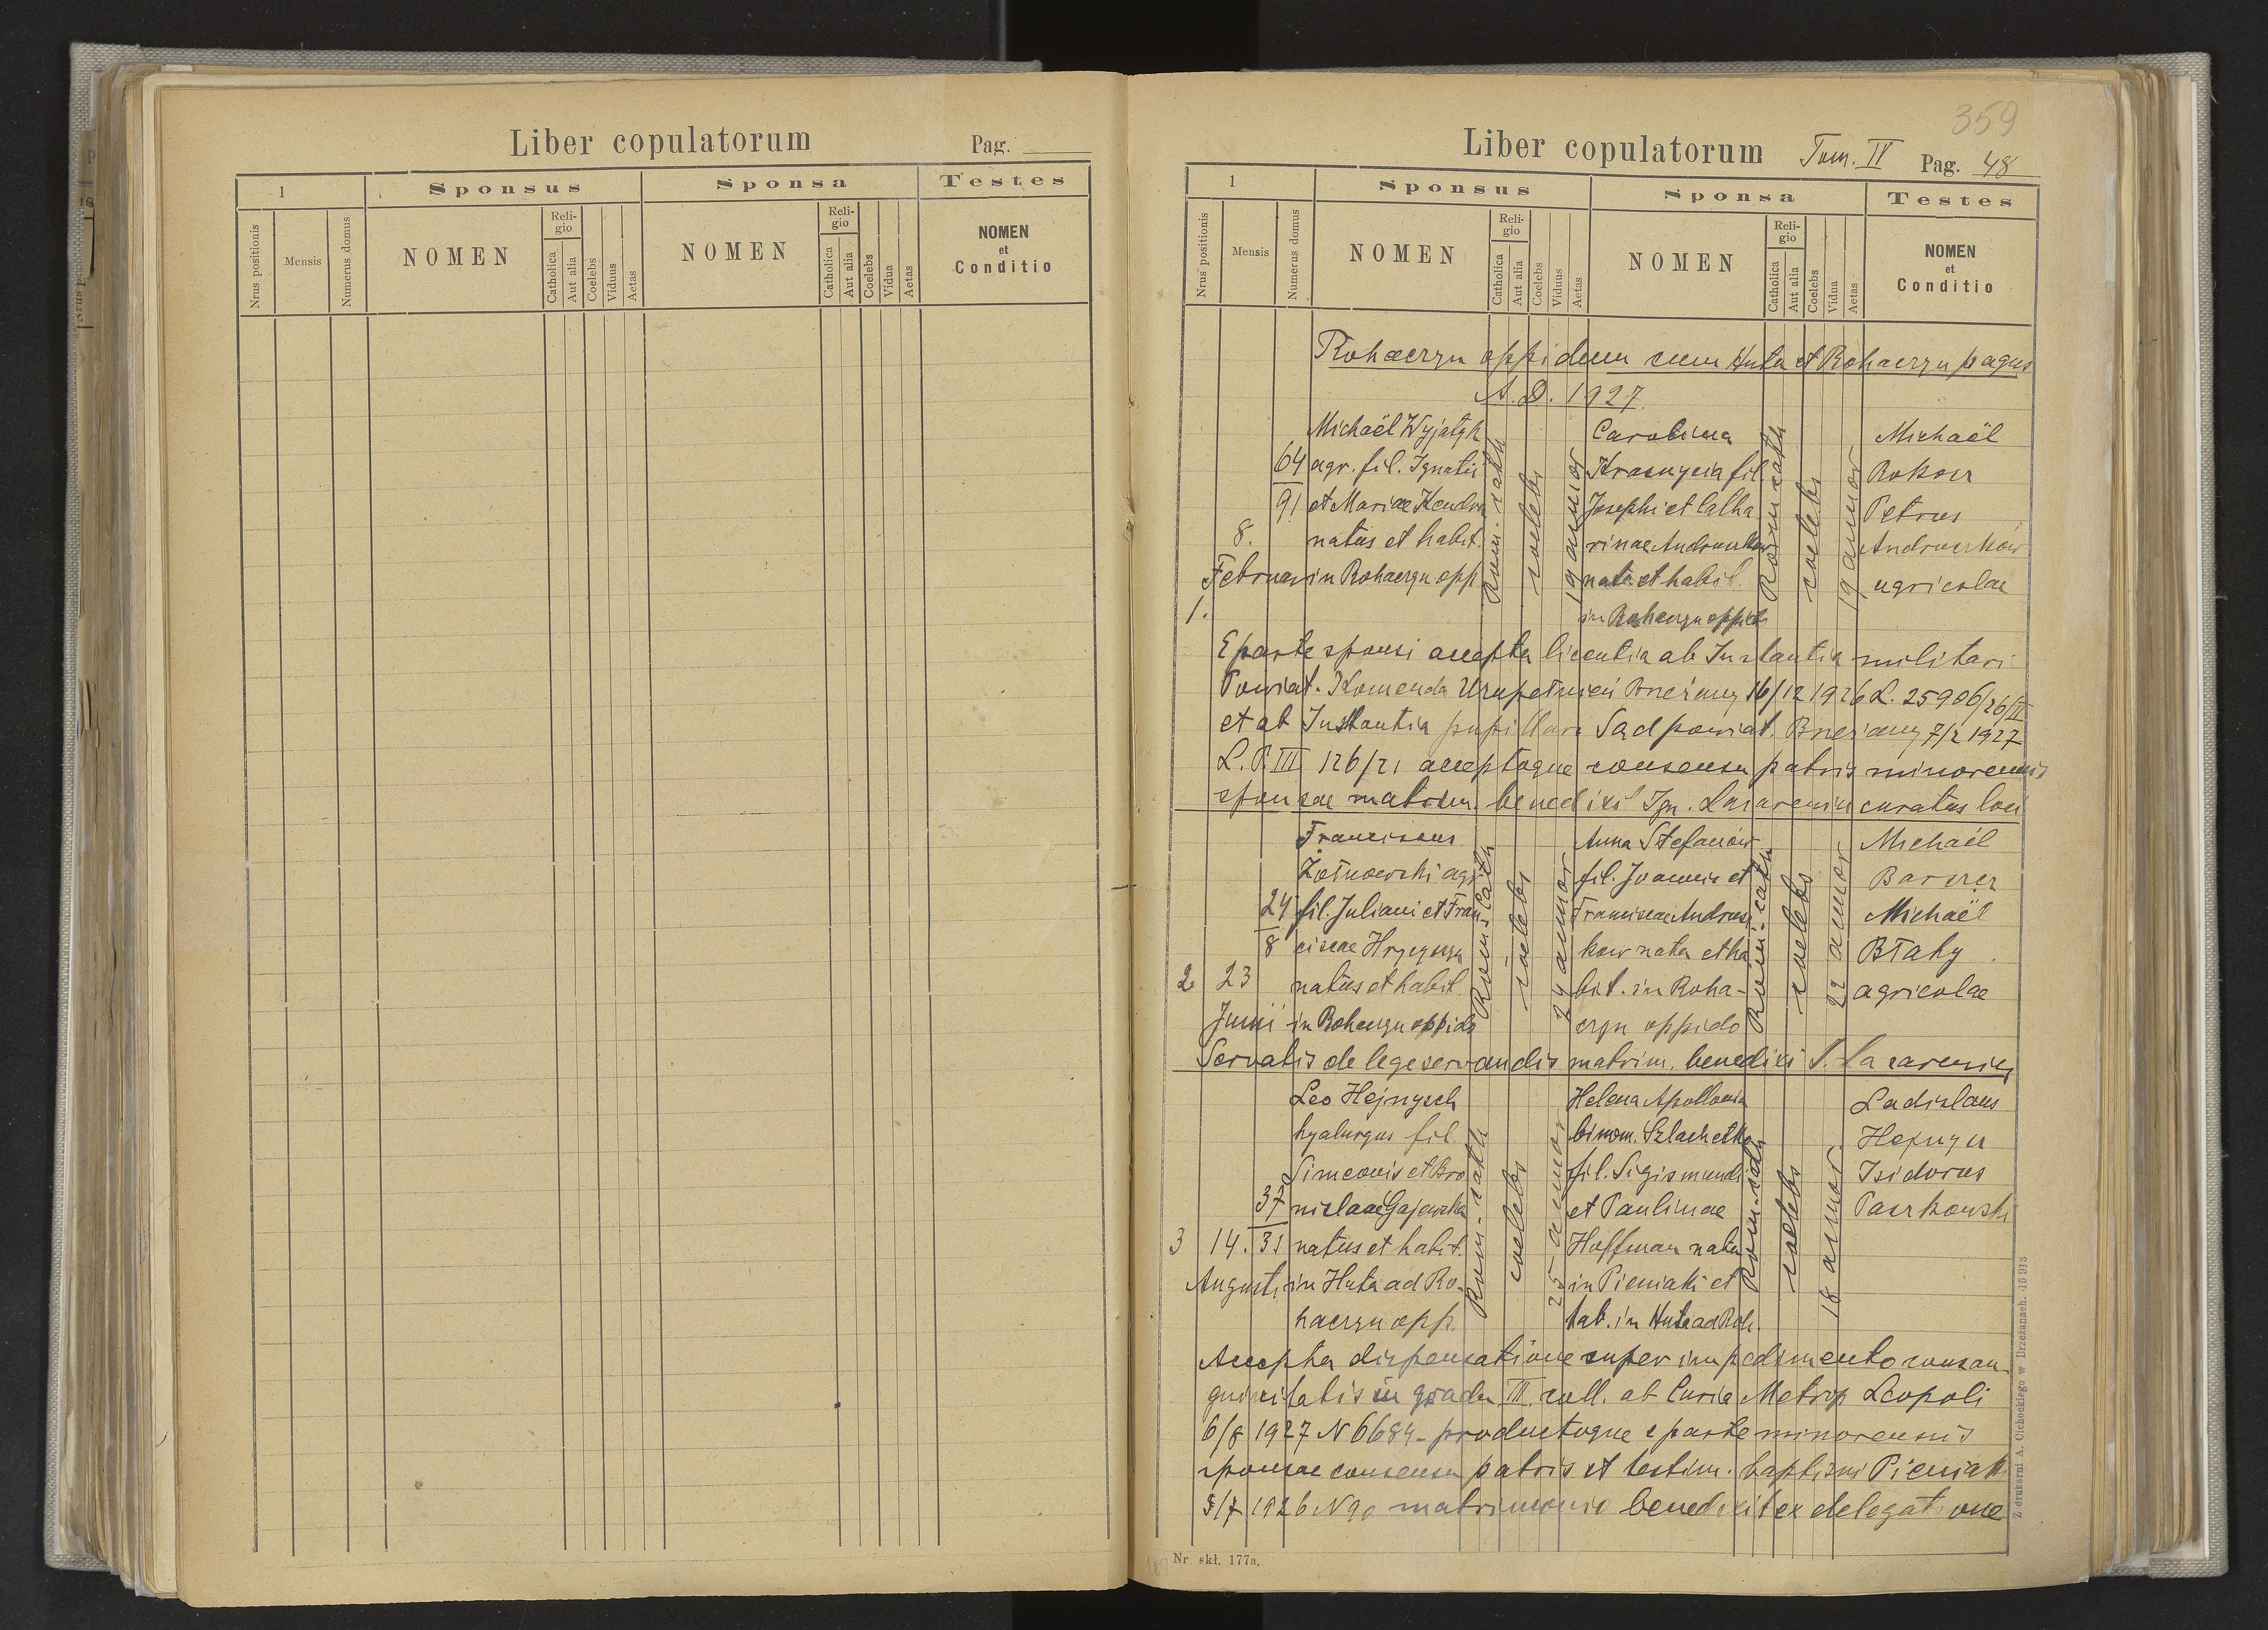 Liber copulatorum Pag.
1 Sponsus Sponsa Testes
Nrus positionis Mensis Numerus domus NOMEN Religio Catholica Aut alia Coelebs Viduus Aetas NOMEN Religio Catholica Aut alia Coelebs Vidua Aetas NOMEN et Conditio
359
Liber copulatorum Tom. II Pag. 48
1 Sponsus Sponsa Testes
Nrus positionis Mensis Numerus domus NOMEN Religio Catholica Aut alia Coelebs Viduus Aetas NOMEN Religio Catholica Aut alia Coelebs Vidua Aetas NOMEN et Conditio
Rohaczyn oppidum cum Huta et Rohaczyn pagus
A. D. 1927.
1.
8.
Februar
64
91
Michaël Wyjatyk
agr. fil. Ignatii
et Mariae
natus et habit.
in Rohaczyn opp.
Rom. cath
coelebs
19 annor
Carolina
fil.
Josephi et Catha
rinae Andruszków
nata et habit.
in Rohaczyn oppido
Rom cath
coelebs
19 annor
Michaël
Petrus
Andruszków
agricolae
E parte sponsi accepta licentia ab Instantia militari
Powiat. Komenda Uzupełnień Brzeżany 16/12 1926 L. 25906/26/II
et ab Instantia pupillari Sąd powiat. Brzeżany 7/2 1927
L. P. III 126/21 acceptoque consensu patris minorennis
sponsae matrim. benedixi Ign. curatus loci
2
23
Junii
24
8
Franciscus
agr.
fil. Juliani et Fran
ciscae
natus et habit.
in Rohaczyn oppido
Rom. Cath
coelebs
24 annor
Anna Stefanów
fil. Joannis et
Franciscae Andrusz
ków nata et ha
bit. in Roha-
czyn oppido
Rom. cath
coelebs
22 annor
Michaël
Michaël
Biały
agricolae
Servatis de lege servandis matrim. benedixi I.
3
14.
Augusti
37
31
Leo Hejnych
hyalurgus fil.
Simeonis et Bro
nislaae Gajewska
natus et habit.
in Huta ad Ro-
haczyn opp.
Rom. cath
coelebs
25 annor
Helena Apollonia
binom. Szlachetka
fil. Sigismundi
et Paulinae
Hoffman nata
in Pieniaki et
hab. in Huta ad Roh.
Rom. cath
coelebs
18 annor
Ladislaus
Isidorus
Paszkowski
Accepta dispensatione super impedimento consan
guinitatis in gradu III coll. ab Curia Metrop Leopoli
6/8 1927 N 6684 - productoque e parte minorennis
sponsae consensu patris et testim. baptismi Pieniaki
1926 N 90 matrimonio benedixit ex delegatione
Nr. skł. 177a.
Z drukarni A. Cichockiego w Brzeżanach. 15 913